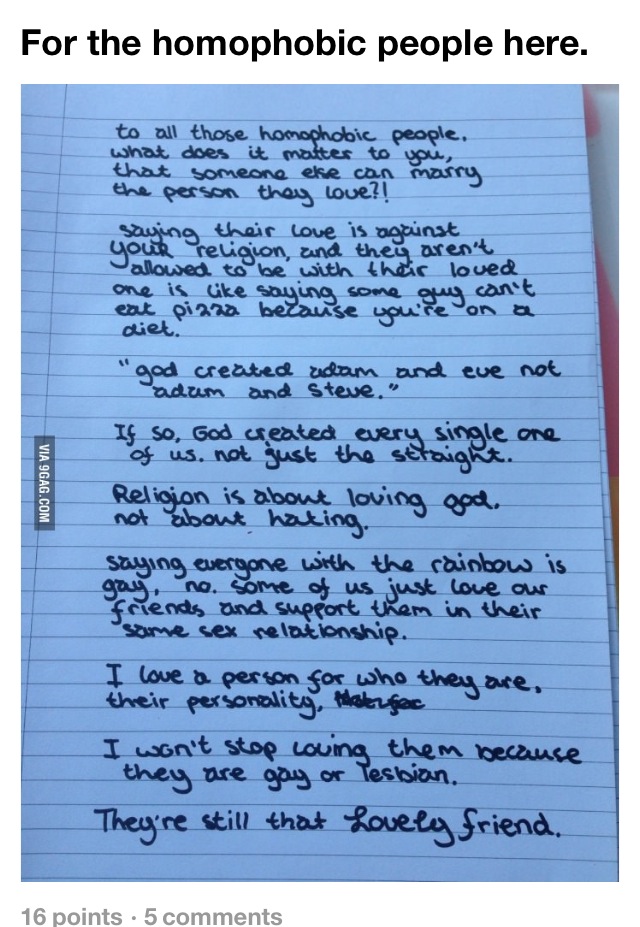 For the homophobic people here.
to all those homophobic people.
what does it matter to you,
that someone else can marry
the person they love?!
saying their love is against
YOUR religion, and they aren't
allowed to be with their loved
one is like saying some guy can't
eat pizza because you're on a
diet.
"god created adam and eve not
adam and steve."
If so, God created every single one
of us. not just the straight.
Religion is about loving god.
not about hating.
saying everyone with the rainbow is
gay, no. some of us just love our
friends and support them in their
same sex relationship.
I love a person for who they are,
their personality,
I won't stop loving them because
they are gay or lesbian.
They're still that Lovely friend.
VIA 9GAG.COM
16 points · 5 comments